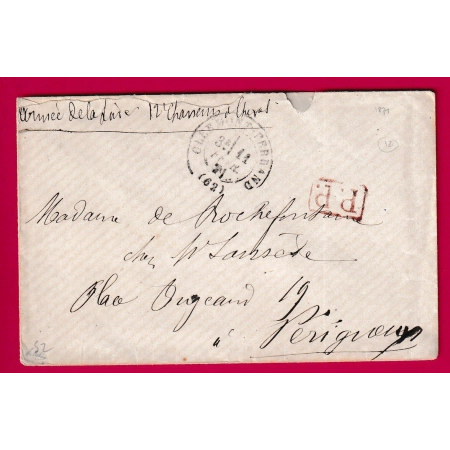 Armée de la Loire 12e Chasseurs à Cheval
CLERMONT-FERRAND (62)
3E 11
71
P.P.
Madame de Rochefontaine
chez Mr Lansède
Place Bugeaud 19
à Périgueux
52